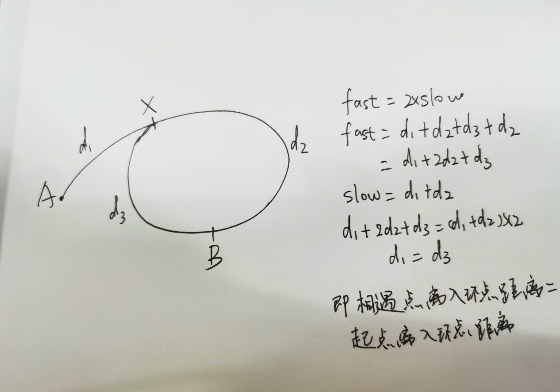 X
d₁
d₂
A
d₃
B
fast = 2×slow
fast = d₁+d₂+d₃+d₂
= d₁+2d₂+d₃
slow = d₁+d₂
d₁+2d₂+d₃=(d₁+d₂)×2
d₁ = d₃
即相遇点离入环点距离=
起点离入环点距离